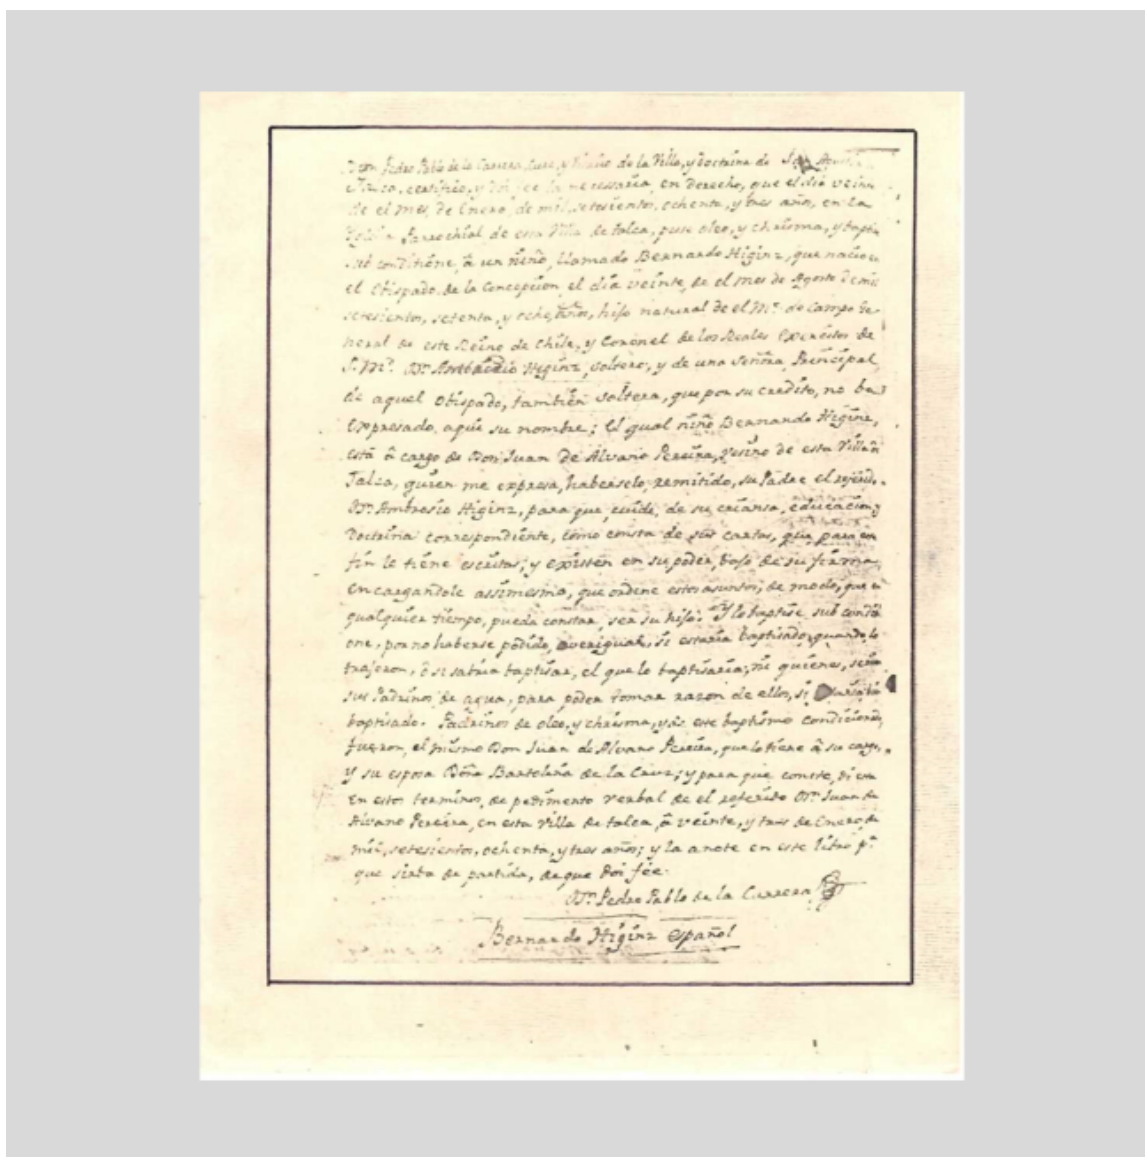 Don Pedro Pablo de la Carrera, Cura, y Vicario de la Villa, y Doctrina de San Agustin
Talca, certifico, y doi fee la necessaria, en derecho, que el dia veinte
de el mes, de Enero, de mil, setesientos, ochenta, y tres años, en la
Iglesia Parrochial de esta Villa de talca, puse oleo, y chrisma, y baptise
sub conditione, â un niño, llamado Bernardo Higinz, que nacio en
el Obispado de la Concepcion, el dia veinte, de el mes de Agosto de mil
setesientos, setenta, y ocho, años, hijo natural de el Mr. de Campo Ge-
neral de este Reino de Chile, y Coronel de los Reales Exercitos de
S. M. Dn. Ambrosio Higinz, soltero, y de una Señora Principal,
de aquel Obispado, tambien soltera, que por su credito, no ba
Expresado, aqui su nombre; El qual niño Bernardo Higinz,
está â cargo de Don Juan de Alvano Pereira, Vesino de esta Villa
Talca, quien me expresa, haberselo, remitido, su Padre el
Dn. Ambrosio Higinz, para que, cuide, de su criansa, educacion, y
Doctrina correspondiente, como consta de sus cartas, que para en
fin le tiene escritas; y existen en su poder, bajo de su firma,
encargandole assimesmo, que ordene estos asuntos, de modo, que en
qualquier tiempo, pueda constar, ser su hijo. Y lo baptise sub conditi
one, por no haberse podido, averiguar, si estaria baptisado, quando lo
trajeron, ô si sabria baptisar, el que lo baptisaria; ni quienes, serian
sus Padrinos de agua, para poder tomar razon de ellos, si
baptisado. Padrinos de oleo, y chrisma, y de este baptismo condicional,
fueron, el mismo Don Juan de Alvano Pereira, que lo tiene â su cargo,
Y su esposa Doña Bartolina de la Cruz; y para que conste, di esta
En estos terminos, de pedimento verbal de el referido Dn. Juan de
Alvano Pereira, en esta Villa de talca, â veinte, y tres de Enero de
mil, setesientos, ochenta, y tres años; y la anote en este libro pa.
que sirba de partida, de que doi fée.
Dn. Pedro Pablo de la Carrera
Bernardo Higinz español